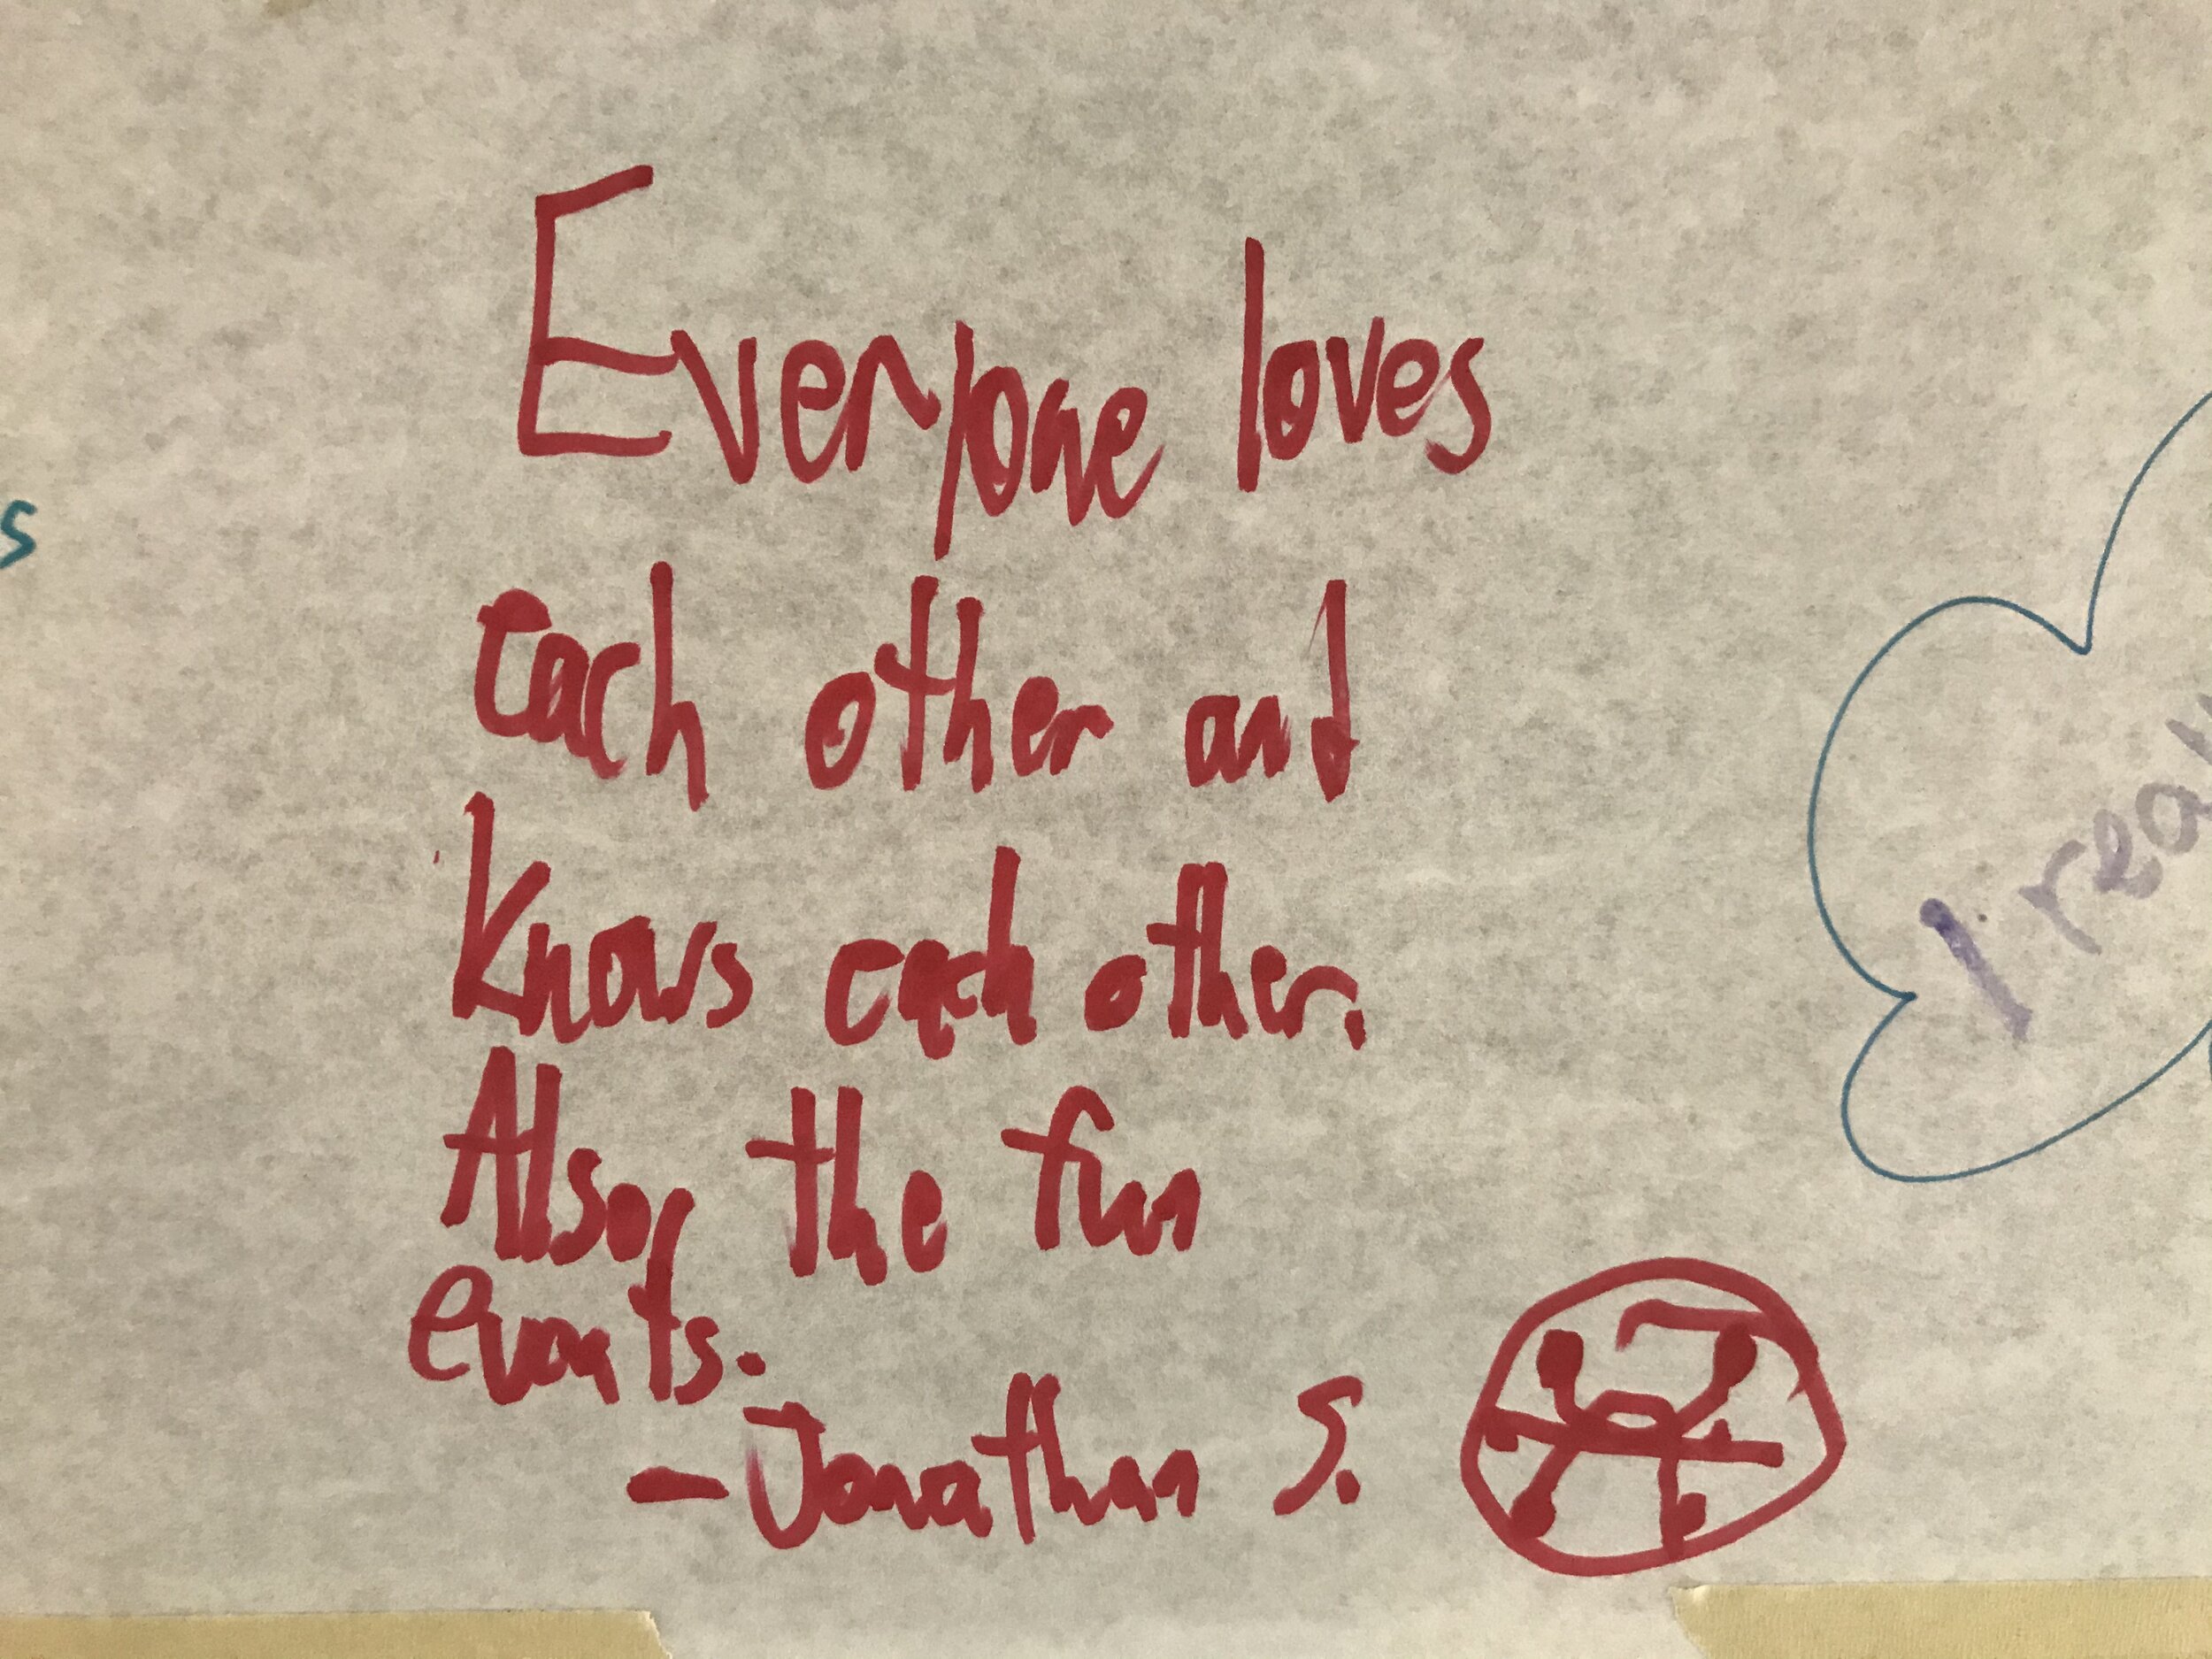 Everyone loves
each other and
knows each other.
Also, the fun
events.
-Jonathan S.
s
I rea